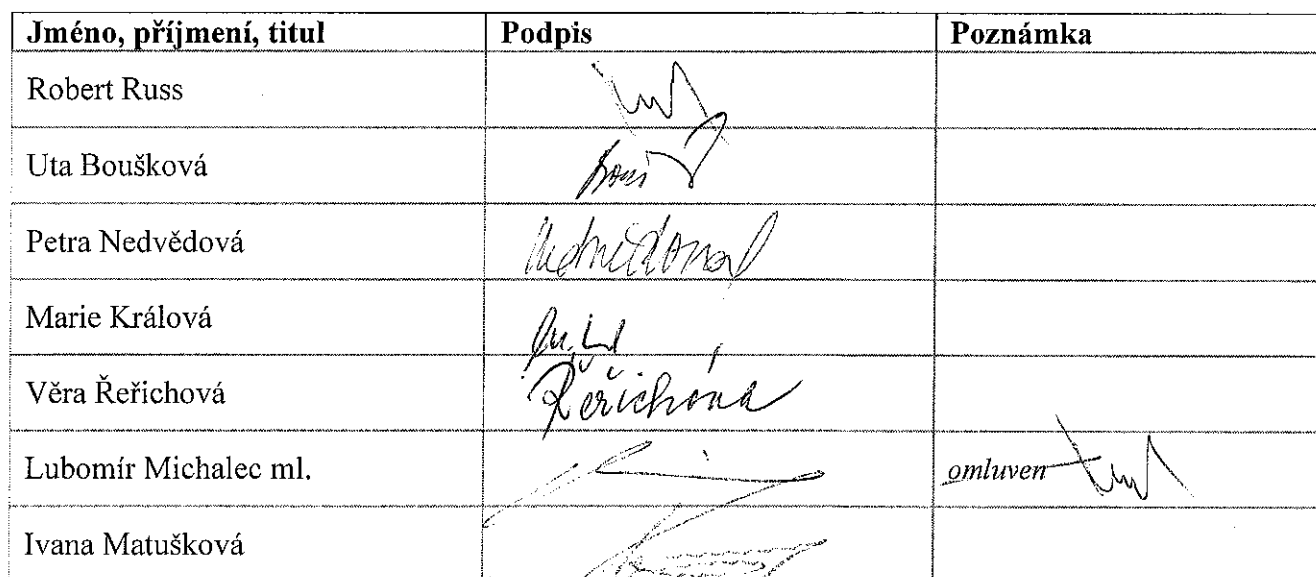 Jméno, příjmení, titul Podpis Poznámka
Robert Russ
Uta Boušková
Petra Nedvědová Nedvědová
Marie Králová
Věra Řeřichová Řeřichová
Lubomír Michalec ml. omluven
Ivana Matušková